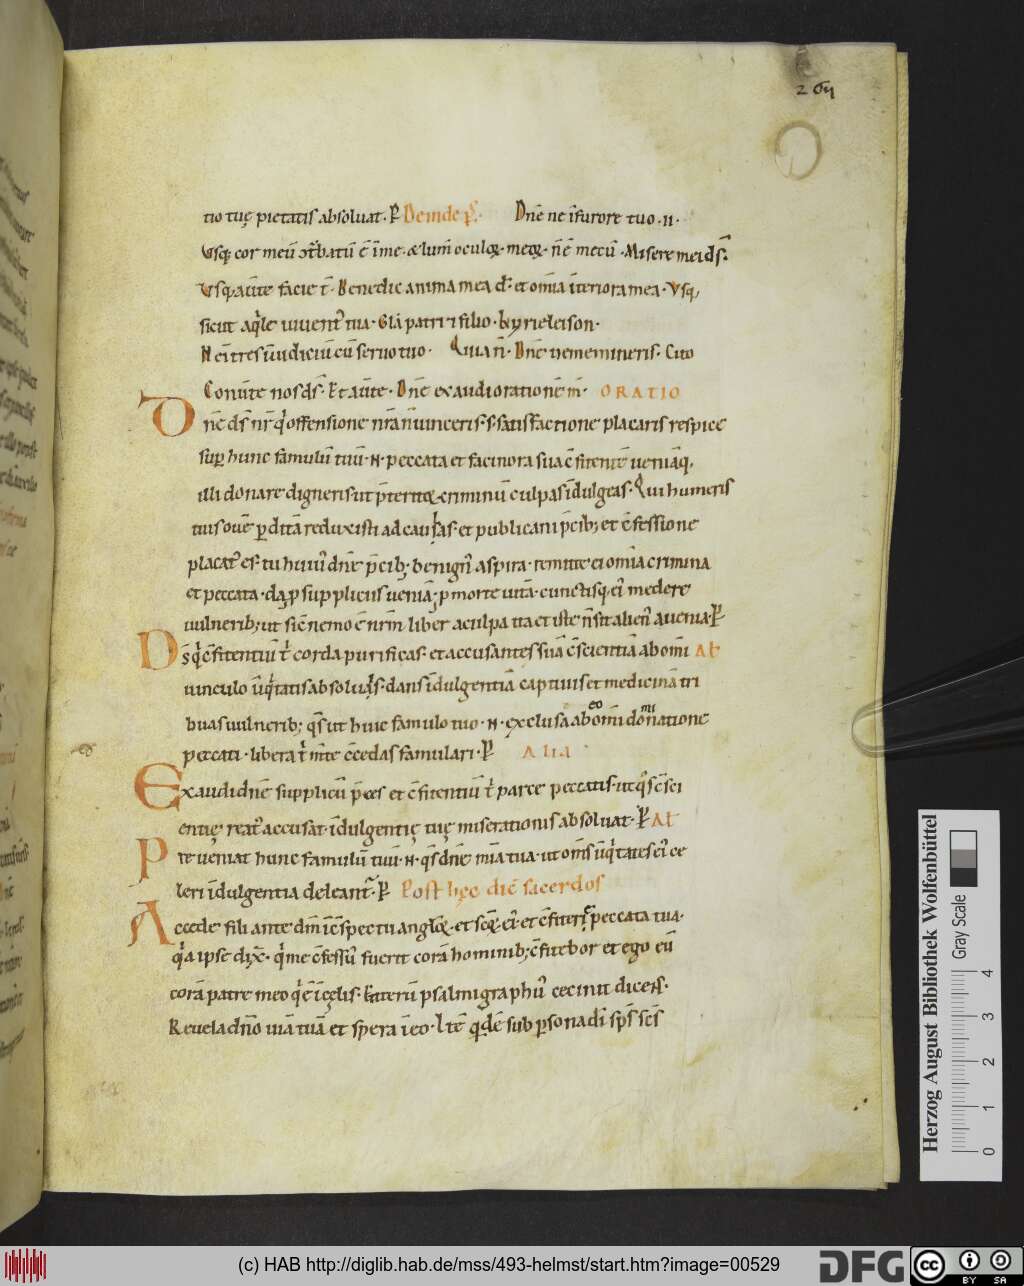 264
tio tuę pietatis absoluat. P̷ Deinde p̄s. Dn̄e ne ī furore tuo .ii.
Vsq; cor meū ꝯt̾batū ē ī me. & lum̄ oculoꝝ meoꝝ. n̄ ē mecū. Miseremei d̄s.
Vsq; auīte facie t̄. Benedic anima mea d̄. et om̄ia īteriora mea. Vsq;
sicut aq̇le iuuent᷒ tua. Gl̄a patri ⁊ filio. kyrieleison.
N eīt res ī iudiciū cū seruo tuo. Quia n̄. Dn̄e ne memineris. Cito
Conūte nos d̄s. Et aūte. Dn̄e exaudi orationē m̄. ORATIO
Dn̄e d̄s nr̄ q̇ offensione nr̄a n̄ uinceris. s; satisfactione placaris respice
suꝑ hunc famulū tuū .N. peccata et facinora sua c̄fitentē ueniāq;
illi donare digneris ut p̄teritoꝝ criminū culpas īdulgeas. Qui humeris
tuis ouē ꝑditā reduxisti ad caulas. et publicani p̄cib; et c̄fessione
placat᷒ es. tu hui᷒ dn̄e p̄cib; benign᷒ aspira. remitte ei om̄ia crimina
et peccata. da ꝓ suppliciis ueniā; ꝓ morte uitā. cunctisq; ei᷒ medere
uulnerib; ut sic̄ nemo ē nr̄m liber a culpa ita et iste n̄ sit alien᷒ a uenia. P̷
D̄s q̇ c̄fitentiū t̄ corda purificas. et accusantes suā c̄scientiā ab om̄i Al̄
uinculo īiq̇tatis absoluis. dans īdulgentiā captiuis et medicinā tri
buas uulnerib; q̄s ut huic famulo tuo .N. exclusa ab eo om̄i dominatione
peccati. libera t̄ m̄te c̄cedas famulari. P̷ Alia
Exaudi dn̄e supplicū p̄ces et c̄fitentiū t̄ parce peccatis. ut q̄s c̄sci
entię reat᷒ accusat. īdulgentię tuę miserationis absoluat. P̷ Al̄
Preueniat hunc famulū tuū .N. q̄s dn̄e mīa tua. ut om̄s īiq̇tates ei᷒ ce
leri īdulgentia deleant᷒. P̷ Post hęc dic̄ sacerdos
Accede fili ante dm̄ ī c̄spectu angloꝝ. et sc̄oꝝ ei᷒. et c̄fiteris peccata tua.
q̇a ipse dix̄. q̇ me c̄fessū fuerit corā hominib; c̄fitebor et ego eū
corā patre meo q̇ ē ī cęlis. Et iterū psalmigraph᷒ cecinit dicens.
Reuela dn̄o uiā tuā et spera ī eo. Itē q̇dē sub ꝑsona dī sp̄s sc̄s
Herzog August Bibliothek Wolfenbüttel
Gray Scale
4
3
2
1
0
(c) HAB http://diglib.hab.de/mss/493-helmst/start.htm?image=00529
DFG
cc
BY SA